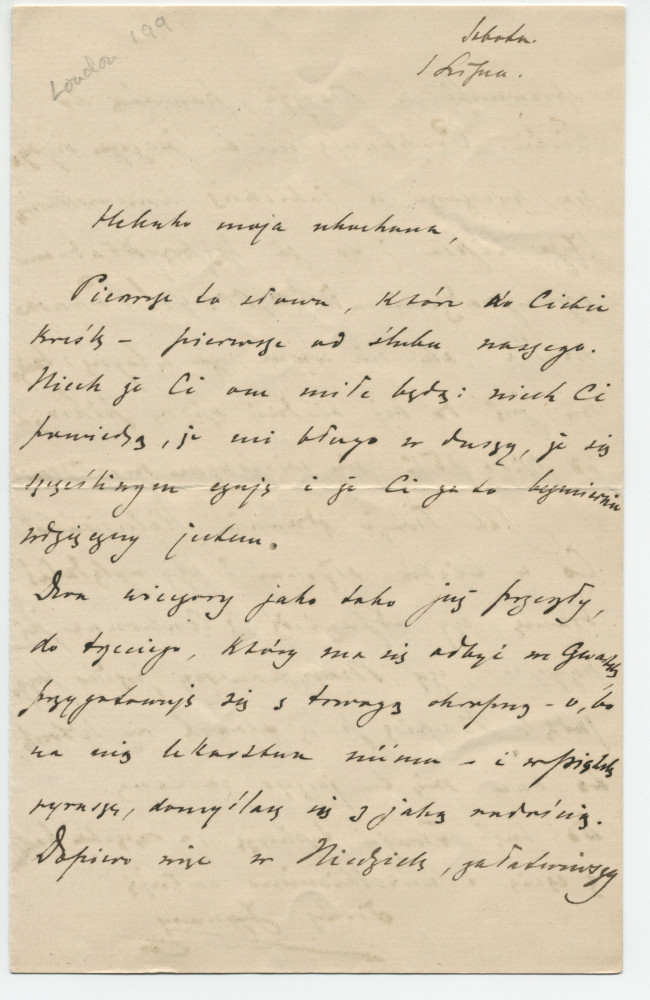 London 199
Sobota.
1 Lipca.
Helenko moja ukochana,
Pierwsze to słowa, które do Ciebie
kreślę – pierwsze od ślubu naszego.
Niech że Ci one miłe będą: niech Ci
powiedzą, że mi błogo w duszy, że się
szczęśliwym czuję i że Ci za to bezmiernie
wdzięczny jestem.
Dwa wieczory jako tako już przeszły,
do trzeciego, który ma się odbyć we Czwartek
przygotowuję się z trwogą okropną – o, bo
na nią lekarstwa niéma – i w piątek
wyruszę, domyślasz się z jaką radością.
Dopiero więc w Niedzielę, załatwiwszy